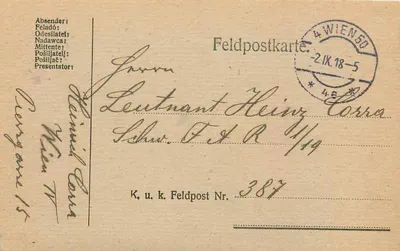 Absender:
Feladó:
Odesílatel:
Nadawca:
Mittente:
Pošiljatelj:
Pošiljač:
Presentator:
Feldpostkarte.
4 WIEN 50
-2.IX.18-5
* 4a *
Herrn
Leutnant Heinz Corra
Schw. F A R 1/19
K. u. k. Feldpost Nr. 387
Heinrich Corra
Wien IV
15